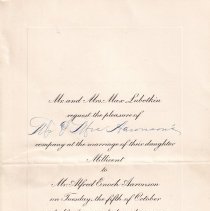 Mr. and Mrs. Max Lubotkin
request the pleasure of
Mr & Mrs Aaronson's
company at the marriage of their daughter
Millicent
to
Mr. Alfred Enoch Aaronson
on Tuesday, the fifth of October